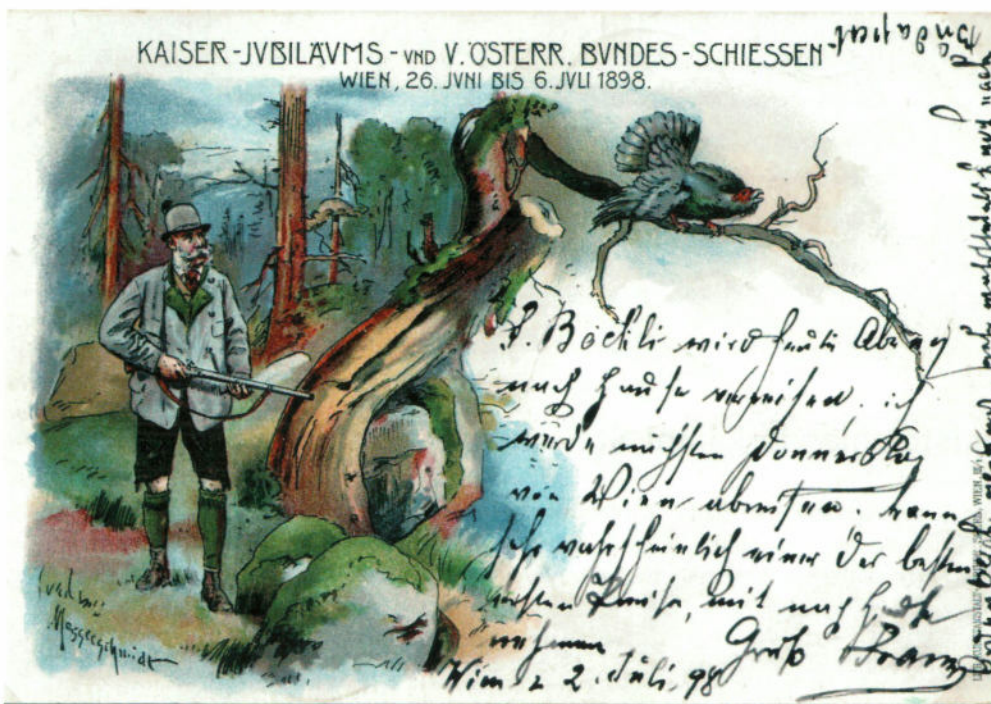 KAISER-JVBILÄVMS- VND V. ÖSTERR. BVNDES-SCHIESSEN
WIEN, 26. JVNI BIS 6. JVLI 1898.
Böckli wird heute Abend
nach Hause verreisen, ich
werde nächsten Donnerstag
von Wien abreisen. kann
sehr wahrscheinlich einer der besten
ersten Preise, mit nach Hause
nehmen Gruß Franz
Wien 2. Juli 98
Budapest